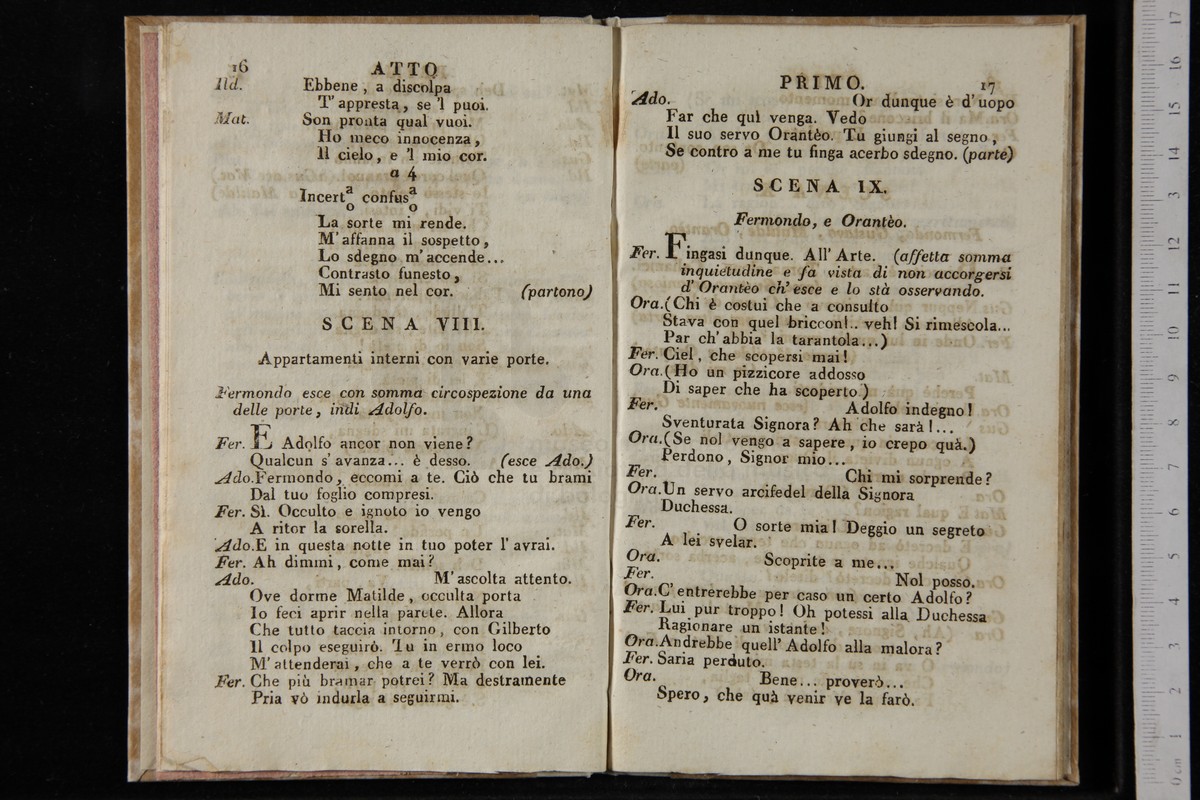 16 ATTO
Ild. Ebbene, a discolpa
T' appresta, se 'l puoi.
Mat. Son pronta qual vuoi.
Ho meco innocenza,
Il cielo, e 'l mio cor.
a 4
Incert a/o confus a/o
La sorte mi rende.
M' affanna il sospetto,
Lo sdegno m' accende...
Contrasto funesto,
Mi sento nel cor. (partono)
SCENA VIII.
Appartamenti interni con varie porte.
Fermondo esce con somma circospezione da una
delle porte, indi Adolfo.
Fer. E Adolfo ancor non viene?
Qualcun s' avanza... è desso. (esce Ado.)
Ado. Fermondo, eccomi a te. Ciò che tu brami
Dal tuo foglio compresi.
Fer. Sì. Occulto e ignoto io vengo
A ritor la sorella.
Ado. E in questa notte in tuo poter l' avrai.
Fer. Ah dimmi, come mai?
Ado. M' ascolta attento.
Ove dorme Matilde, occulta porta
Io feci aprir nella parete. Allora
Che tutto taccia intorno, con Gilberto
Il colpo eseguirò. Tu in ermo loco
M' attenderai, che a te verrò con lei.
Fer. Che più bramar potrei? Ma destramente
Pria vò indurla a seguirmi.
PRIMO. 17
Ado. Or dunque è d' uopo
Far che quì venga. Vedo
Il suo servo Orantèo. Tu giungi al segno,
Se contro a me tu finga acerbo sdegno. (parte)
SCENA IX.
Fermondo, e Orantèo.
Fer. Fingasi dunque. All' Arte. (affetta somma
inquietudine e fa vista di non accorgersi
d' Orantèo ch' esce e lo stà osservando.
Ora. (Chi è costui che a consulto
Stava con quel briccon!.. veh! Si rimescola...
Par ch' abbia la tarantola...)
Fer. Ciel, che scopersi mai!
Ora. (Ho un pizzicore addosso
Di saper che ha scoperto)
Fer. Adolfo indegno!
Sventurata Signora? Ah che sarà!...
Ora. (Se nol vengo a sapere, io crepo quà.)
Perdono, Signor mio...
Fer. Chi mi sorprende?
Ora. Un servo arcifedel della Signora
Duchessa.
Fer. O sorte mia! Deggio un segreto
A lei svelar.
Ora. Scoprite a me...
Fer. Nol posso.
Ora. C' entrerebbe per caso un certo Adolfo?
Fer. Lui pur troppo! Oh potessi alla Duchessa
Ragionare un istante!
Ora. Andrebbe quell' Adolfo alla malora?
Fer. Saria perduto.
Ora. Bene... proverò...
Spero, che quà venir ve la farò.
0 cm 1 2 3 4 5 6 7 8 9 10 11 12 13 14 15 16 17